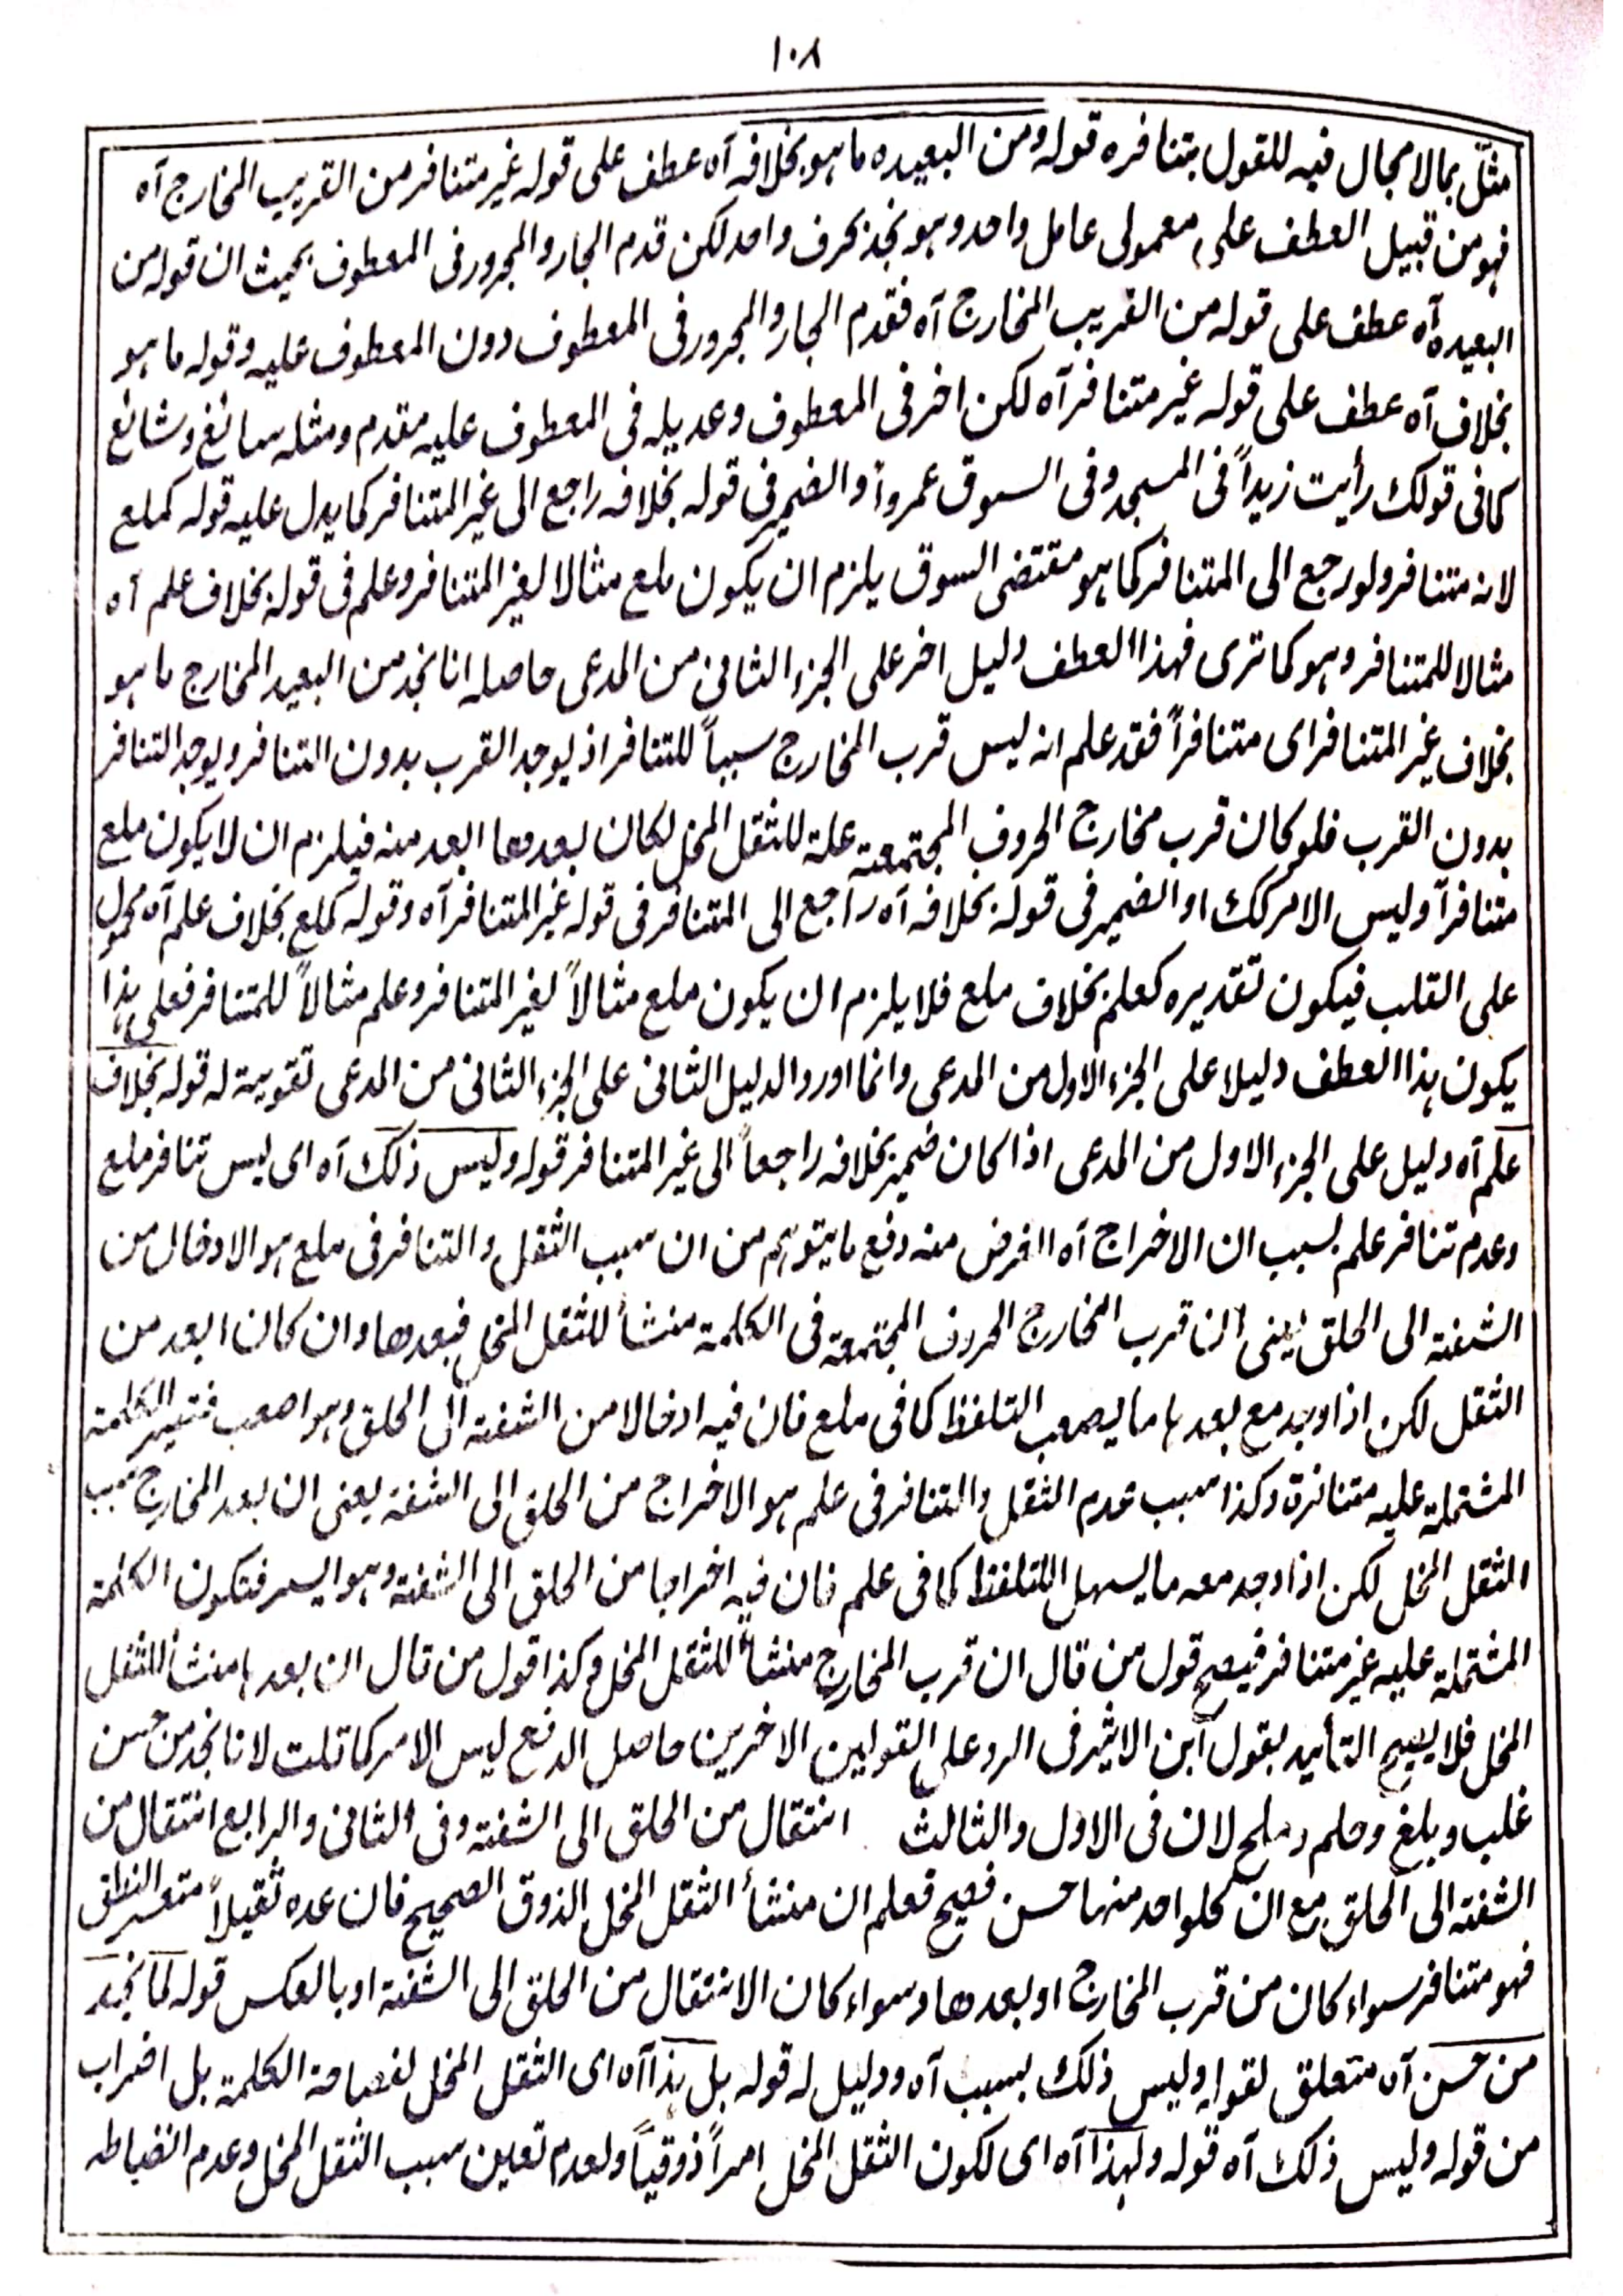 ١٠٨
مثّل بما لا مجال فيه للقول بتنافره قوله ومن البعيده ما هو بخلافه آه عطف على قوله غير متنافر من القريب المخارج آه
فهو من قبيل العطف على معمولى عامل واحد وهو نجد بحرف واحد لكن قدم الجار والمجرور فى المعطوف بحيث ان قوله من
البعيده آه عطف على قوله من القريب المخارج آه فقدم الجار والمجرور فى المعطوف دون المعطوف عليه وقوله ما هو
بخلاف آه عطف على قوله غير متنافر آه لكن اخر فى المعطوف وعديله فى المعطوف عليه مقدم ومثله سائغ وشائع
كما فى قولك رأيت زيداً فى المسجد وفى السوق عمرواً والضمير فى قوله بخلافه راجع الى غير المتنافر كما يدل عليه قوله كملع
لانه متنافر ولو رجع الى المتنافر كما هو مقتضى السوق يلزم ان يكون ملع مثالا لغير المتنافر وعلم فى قوله بخلاف علم آه
مثالا للمتنافر وهو كما ترى فهذا العطف دليل اخر على الجزء الثانى من المدعى حاصله انا نجد من البعيد المخارج ما هو
بخلاف غير المتنافر اى متنافراً فقد علم انه ليس قرب المخارج سبباً للتنافر اذ يوجد القرب بدون التنافر ويوجد التنافر
بدون القرب فلو كان قرب مخارج الحروف المجتمعة علة للثقل المخل لكان بعدها ابعد منه فيلزم ان لا يكون ملع
متنافراً وليس الامر كك او الضمير فى قوله بخلافه آه راجع الى المتنافر فى قوله غير المتنافر آه وقوله كملع بخلاف علم آه محمول
على القلب فيكون تقديره كعلم بخلاف ملع فلا يلزم ان يكون ملع مثالاً لغير المتنافر وعلم مثالاً للمتنافر فعلى هذا
يكون هذا العطف دليلا على الجزء الاول من المدعى وانما اورد الدليل الثانى على الجزء الثانى من المدعى تقوية له قوله بخلاف
علم آه دليل على الجزء الاول من المدعى اذا كان ضمير بخلافه راجعاً الى غير المتنافر قوله وليس ذلك آه اى ليس تنافر ملع
وعدم تنافر علم بسبب ان الاخراج آه الغرض منه دفع ما يتوهم من ان سبب الثقل والتنافر فى ملع هو الادخال من
الشفة الى الحلق يعنى ان قرب المخارج الحروف المجتمعة فى الكلمة منشأ للثقل المخل فبعدها وان كان ابعد من
الثقل لكن اذا وجد مع بعدها ما يصعب التلفظ كما فى ملع فان فيه ادخالا من الشفة الى الحلق وهو اصعب فتصير الكلمة
المشتملة عليه متنافرة وكذا سبب عدم الثقل والتنافر فى علم هو الاخراج من الحلق الى الشفة يعنى ان بعد المخارج سبب
الثقل المخل لكن اذا وجد معه ما يسهل التلفظ كما فى علم فان فيه اخراجا من الحلق الى الشفة وهو ايسر فتكون الكلمة
المشتملة عليه غير متنافر فيصح قول من قال ان قرب المخارج منشأ للثقل المخل وكذا قول من قال ان بعدها منشأ للثقل
المخل فلا يصح التأييد بقول ابن الاثير فى الرد على القولين الاخرين حاصل الدفع ليس الامر كما قلت لانا نجد من حسن
غلب وبلغ وحلم وملح لان فى الاول والثالث انتقال من الحلق الى الشفة وفى الثانى والرابع انتقال من
الشفة الى الحلق مع ان كلواحد منها حسن فصيح فعلم ان منشأ الثقل المخل الذوق الصحيح فان عده ثقيلاً متعسر النطق
فهو متنافر سواء كان من قرب المخارج او بعدها وسواء كان الانتقال من الحلق الى الشفة او بالعكس قوله لما نجد
من حسن آه متعلق لقوله وليس ذلك بسبب آه ودليل له قوله بل هذا آه اى الثقل المخل لفصاحة الكلمة بل اضراب
من قوله وليس ذلك آه قوله ولهذا آه اى لكون الثقل المخل امراً ذوقياً ولعدم تعين سبب الثقل المخل وعدم انضباطه